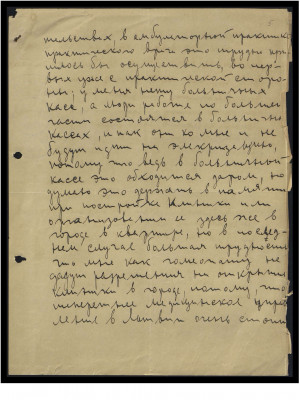 тельствах, в амбулаторной практике
практического врача это трудно при
шлось бы осуществить, во пер-
вых уже с практической сторо-
ны; у меня нету больничных
касс, а люди рабочие по большей
части состоят в больничных
кассах, и как он ко мне и не
будут идти на
потому что ведь в больничной
кассе это обходится даром, но
думаю это держать в памяти
при постройке клиники или
организовании её здесь же в
городе в квартире, но в послед-
нем случае большая трудность
что мне как гомеопату не
дадут разрешения на открытие
клиники в городе, потому, что
теперешнее медицинское управ
ление в Латвии очень